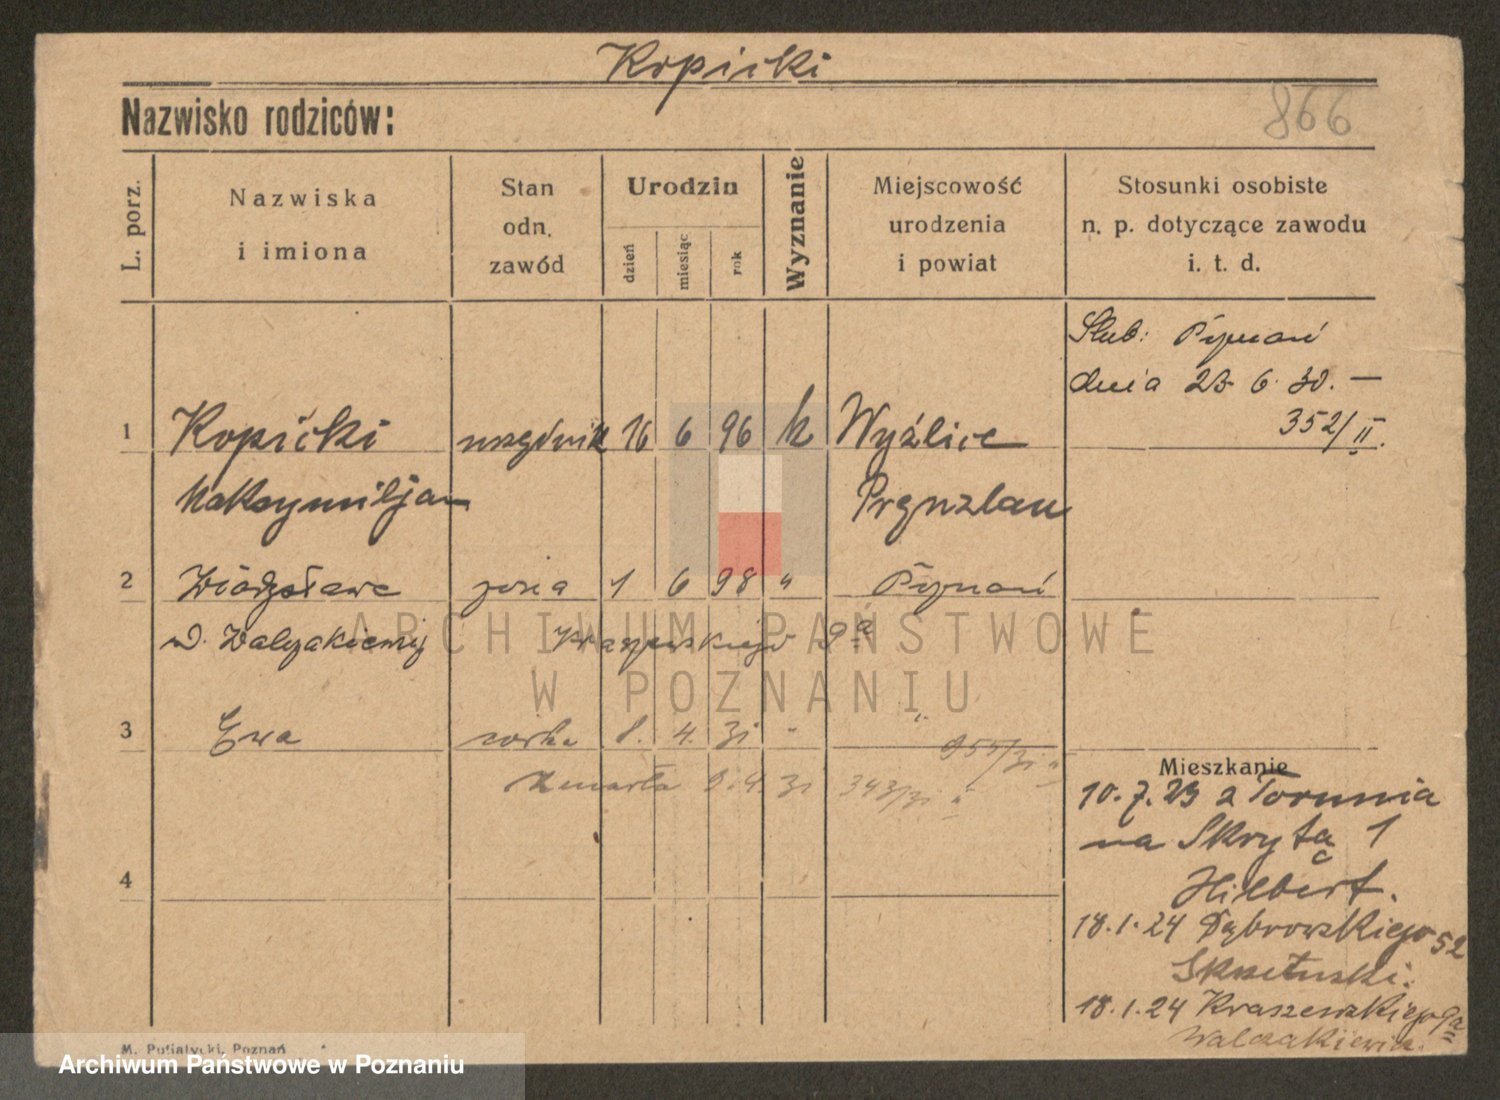 Kopicki
Nazwisko rodziców:
866
L. porz.
Nazwiska
i imiona
Stan
odn.
zawód
Urodzin
dzień
miesiąc
rok
Wyznanie
Miejscowość
urodzenia
i powiat
Stosunki osobiste
n. p. dotyczące zawodu
i. t. d.
Ślub: Poznań
dnia 23 6. 30. —
352/II.
1 Kopicki urzędnik 16 6 96 k Wyźlice
Maksymiljan
2 Władysława żona 1 6 98 " Poznań
Kraszewskiego 9a
3 Ewa córka 8. 4. 31 " "
955/31 II
zmarła 9. 4. 31 343/31 II
4
Mieszkanie
10. 7. 23 z Torunia
na Skrytą 1
Hilbert.
18. 1. 24 Dąbrowskiego 52
Skrzetuski.
18. 1. 24 Kraszewskiego 9a
Walczakiewicz.
ARCHIWUM PAŃSTWOWE
W POZNANIU
M. Putiatycki, Poznań
Archiwum Państwowe w Poznaniu